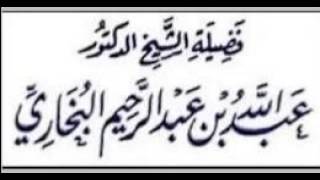 فَضِيلَةِ الشَّيْخِ الدكتُور
عَبْدِ اللَّهِ بْنِ عَبْدِ الرَّحِيمِ الْبُخَارِيِّ